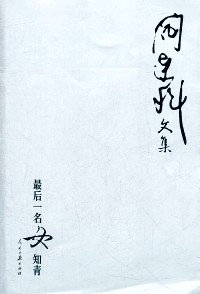 阎连科
文集
最后一名女知青
人民日报出版社